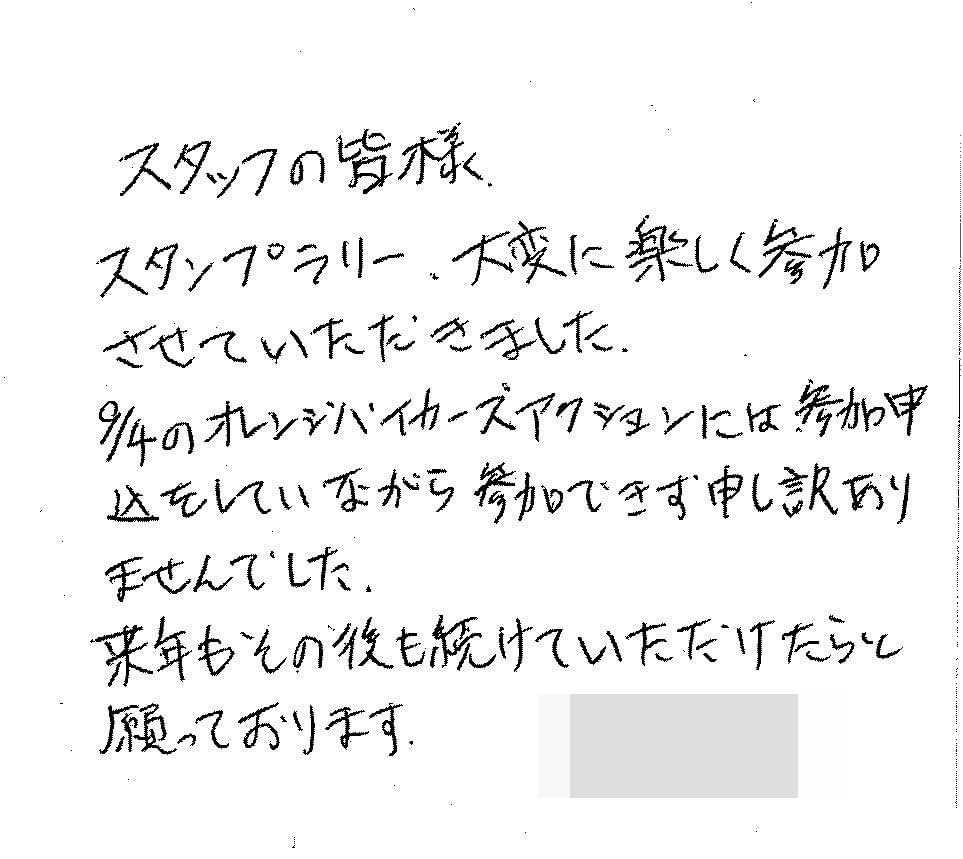 スタッフの皆様.
スタンプラリー、大変に楽しく参加
させていただきました.
9/4のオレンジバイカーズアクションには参加申
込をしていながら参加できず申し訳あり
ませんでした.
来年もその後も続けていただけたらと
願っております.